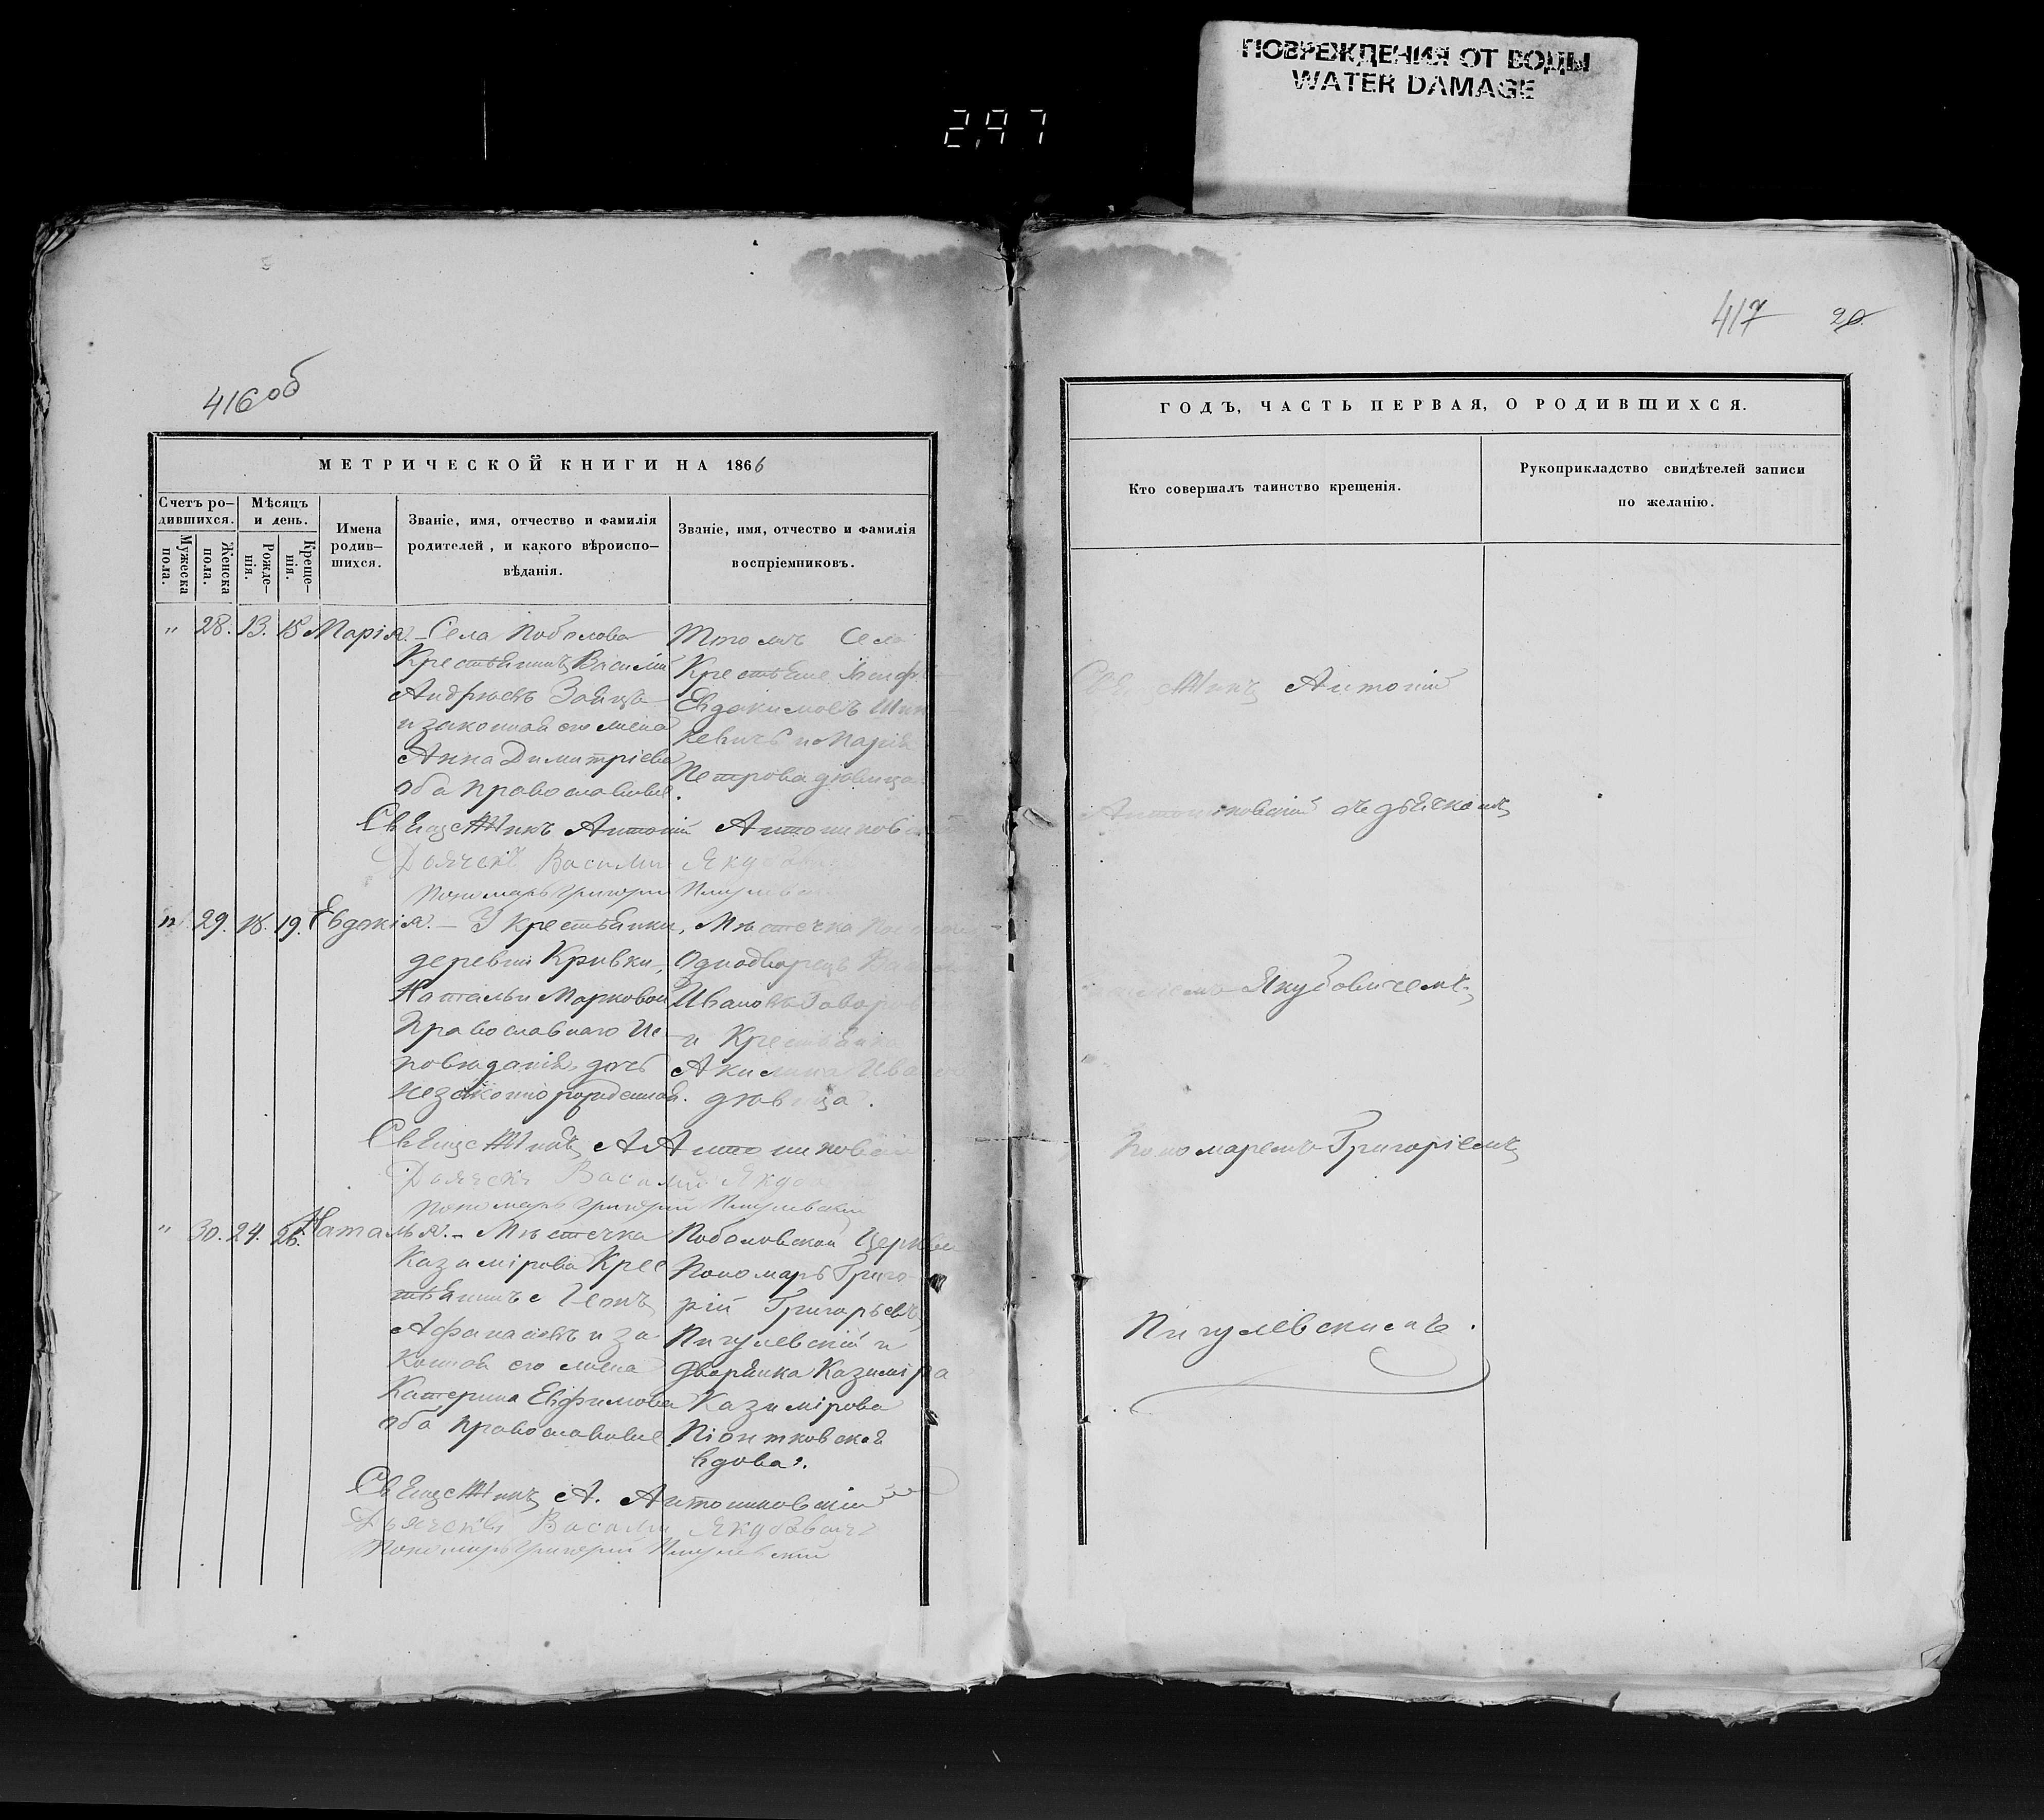 ПОВРЕЖДЕНИЯ ОТ ВОДЫ
WATER DAMAGE
2,97
416 об
МЕТРИЧЕСКОЙ КНИГИ НА 1866
Счетъ ро-
дившихся.
Мужеска
пола.
Женска
пола.
Мѣсяцъ
и день.
Рожде-
нія.
Креще-
нія.
Имена
родив-
шихся.
Званіе, имя, отчество и фамилія
родителей, и какого вѣроиспо-
вѣданія.
Званіе, имя, отчество и фамилія
воспріемниковъ.
" 28. 13. 15 Марія.
Села Поболова
Крестьянинъ Василій
Андреевъ Заяцъ
и законная его жена
Анна Димитріева
оба православные.
Крестьяне
Евдокимовъ Шин-
кевичъ и Марія
Петрова дѣвица.
Священникъ Антоній Антониковскій
Дьячекъ Василій
Пономарь Григорій
" 29. 18. 19. Евдокія.
У крестьянки,
деревни Кривки,
Натальи Марковой
Православнаго Ис-
повѣданія, дочь
незаконно рожденная.
Мѣстечка
Однодворецъ
Ивановъ
и Крестьянка
Акилина
дѣвица.
Священникъ А Антониковскій
Дьячекъ Василій
Пономарь Григорій Пигулевскій
" 30. 24. 26. Наталья.
Мѣстечка
Казимірова Крес
тьянинъ
и за-
конная его жена
Катерина Евфимова
оба православные
Поболовской Церкви
Пономарь Григо-
рій Григорьевъ
Пигулевскій и
дворянка Казиміра
Казимірова
Піонтковская
вдова.
Священникъ А. Антониковскій
Дьячекъ Василій Якубовичъ
Пономарь Григорій Пигулевскій
417 20
ГОДЪ, ЧАСТЬ ПЕРВАЯ, О РОДИВШИХСЯ.
Кто совершалъ таинство крещенія.
Рукоприкладство свидѣтелей записи
по желанію.
Священникъ Антоній
Антониковскій съ дьячкомъ
Якубовичемъ,
Пономаремъ Григоріемъ
Пигулевскимъ.